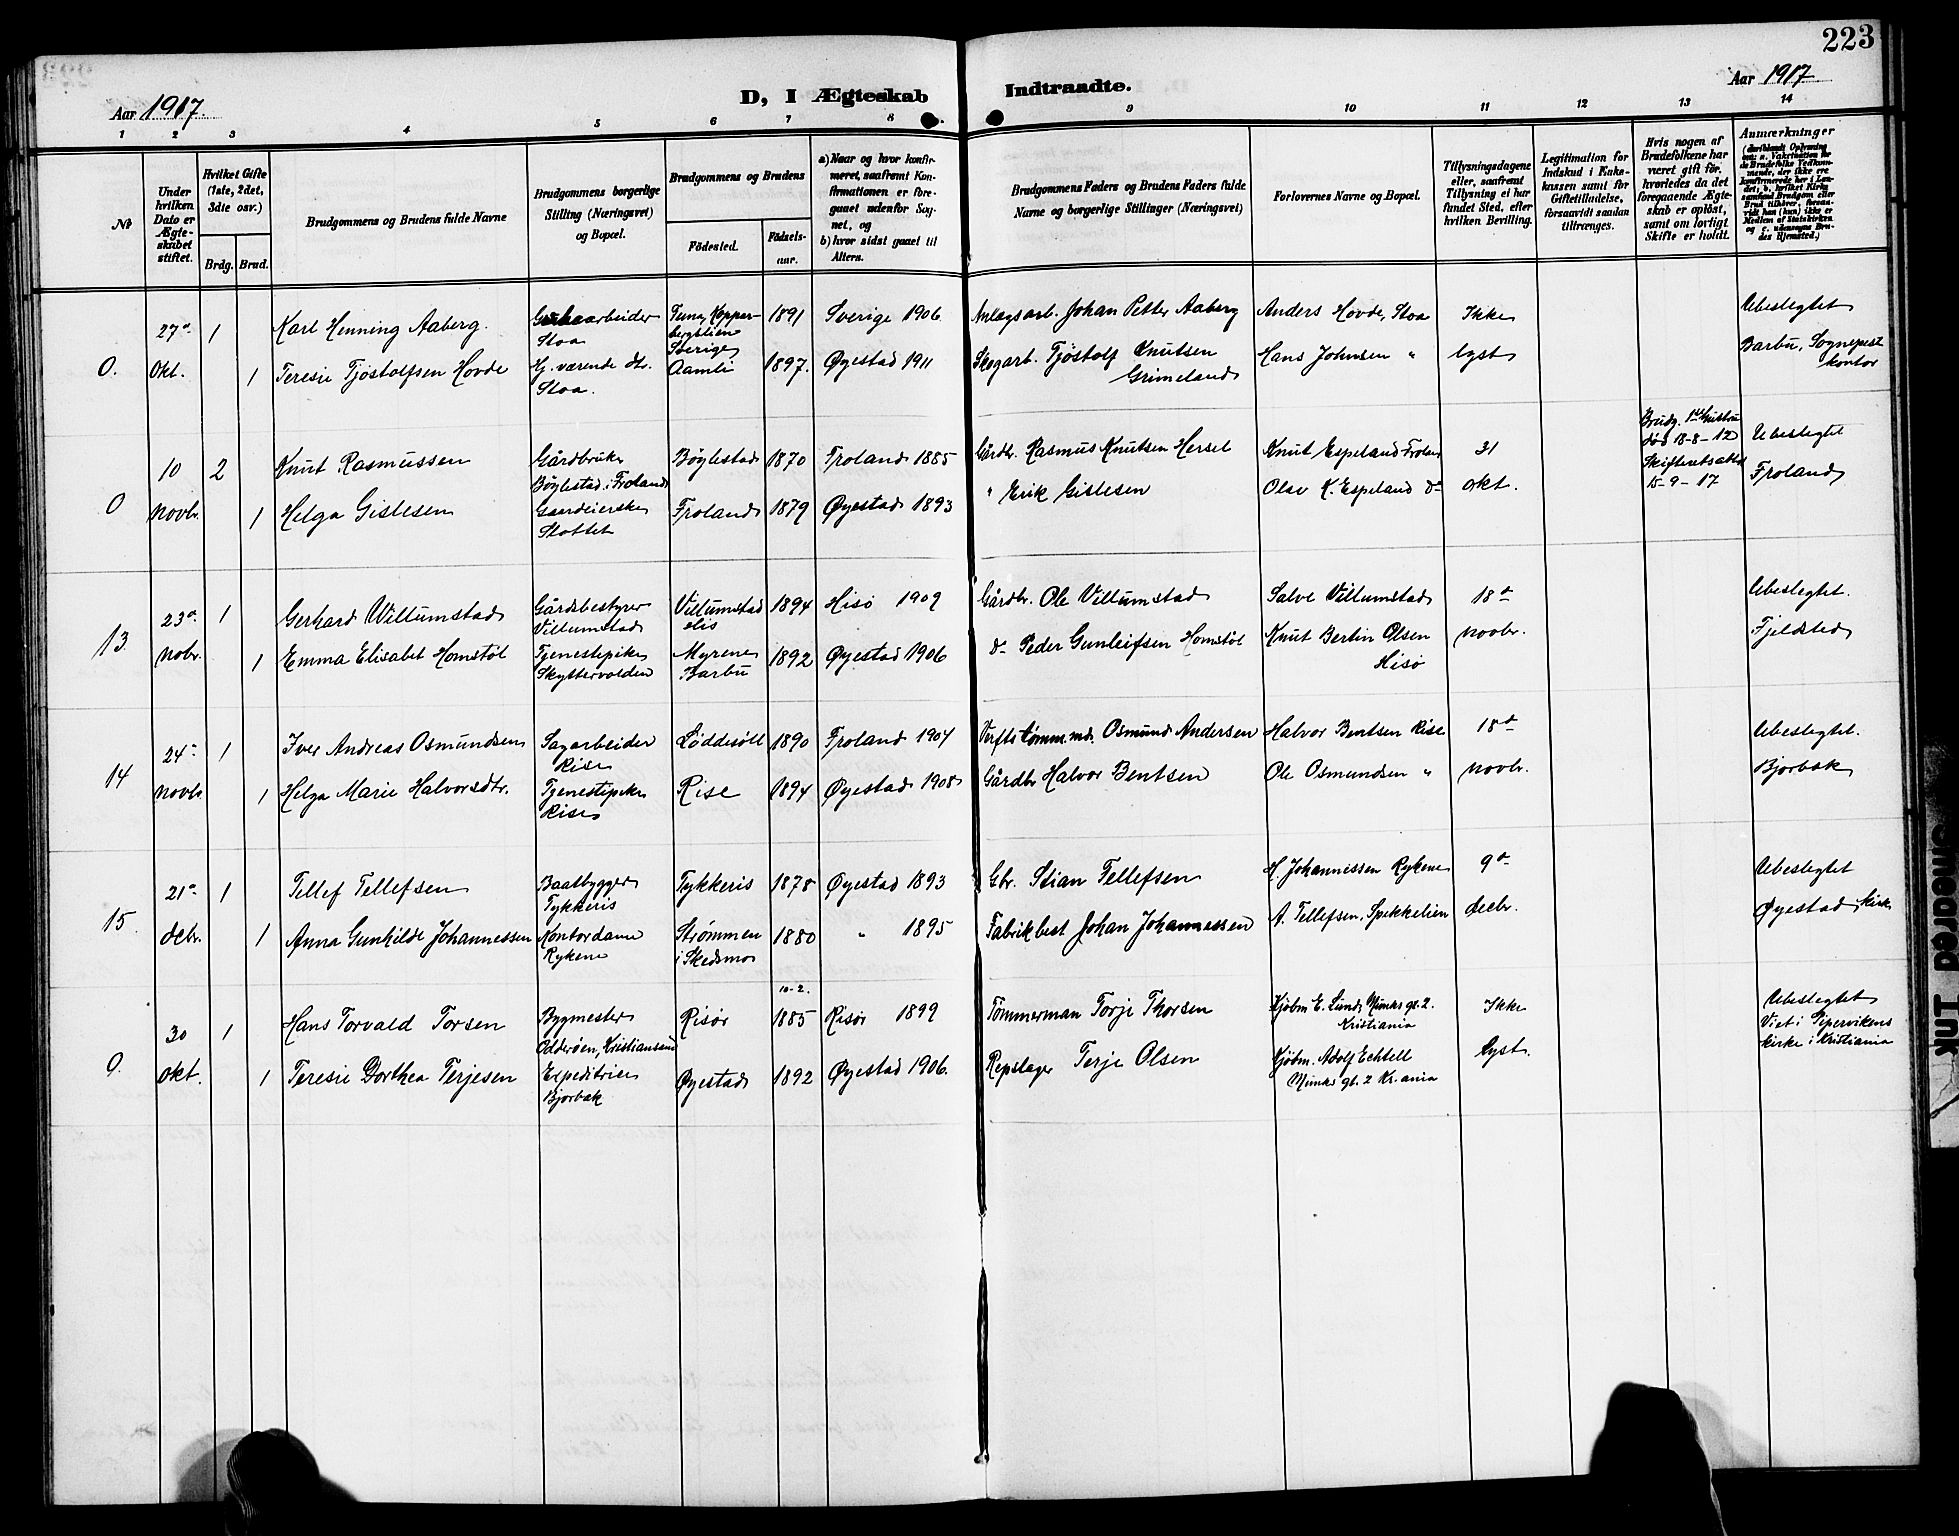 223
Aar 1917.
D, I Ægteskab Indtraadte.
Aar 1917
1 2 3 4 5 6 7 8 9 10 11 12 13 14
№
Under hvilken Dato er Ægteskabet stiftet.
Hvilket Gifte (1ste, 2det, 3die osv.)
Brdg. Brud.
Brudgommens og Brudens fulde Navne
Brudgommens borgerlige Stilling (Næringsvei) og Bopæl.
Brudgommens og Brudens
Födested.
Födselsaar.
a) Naar og hvor konfirmeret, saafremt Konfirmationen er foregaaet udenfor Sognet, og
b) hvor sidst gaaet til Alters.
Brudgommens Faders og Brudens Faders fulde Navne og borgerlige Stillinger (Næringsvei)
Forlovernes Navne og Bopæl.
Tillysningsdagene eller, saafremt Tillysning ei har fundet Sted, efter hvilken Bevilling.
Legitimation for Indskud i Enkekassen samt for Giftetilladelse, forsaavidt saadan tiltrænges.
Hvis nogen af Brudefolkene har været gift för, hvorledes da det foregaaende Ægteskab er oplöst, samt om lovligt Skifte er holdt.
Anmærkninger
0. 27de Okt. 1 Karl Henning Aaberg. Stoa Tuna, Kopperbergslien Sverige 1891 Sverige 1906 Anlægsarb. Johan Petter Aaberg Anders Hovde, Stoa Ikke Ubeslegtet
1 Teresie Tjöstolfsen Hovde Hj. værende dtr. Stoa. Aamli 1897. Øyestad 1911 Skogarb. Tjöstolf Knutsen Grimeland Hans Johnsen " lyst Barbu, Sogneprest kontor
0 10 Novbr. 2 Knut Rasmussen Gårdbruker Böylestad i Froland Böylestad 1870 Froland 1885 Gårdbr. Rasmus Knutsen Hersel Knut Espeland Froland 31 Brudg. 1ste hustru död 18-8-12 Ubeslegtet
1 Helga Gislesen Gaardeierske Slottet Froland 1879 Øyestad 1893 " Erik Gislesen Olav K. Espeland do okt. Skifteretsattest 15-9-17 Froland
13. 23de Nobr. 1 Gerhard Willumstad Gårdsbestyrer Villumstad Villumstad His 1894 Hisö 1909 Gårdbr. Ole Villumstad Salve Villumstad 18de Ubeslegtet.
1 Emma Elisabet Homstöl Tjenestepike Skyttervolden Myrene Barbu 1892 Øyestad 1906 do Peder Gunleifsen Homstöl Knut Bertin Olsen Hisö novbr. Fjeldsted
14 24de Novbr 1 Iver Andreas Osmundsen Sagarbeider Rise Löddesöll 1890 Froland 1904 Verfts tömm.md. Osmund Andersen Halvor Bentsen Rise 18de Ubeslegtet.
1 Helga Marie Halvorsdtr. Tjenestepike Rise Rise 1894 Øyestad 1908 Gårdbr Halvor Bentsen Ole Osmundsen " novbr. Bjorbæk
15. 21de debr. 1 Tellef Tellefsen Baatbygger Tykkeris Tykkeris 1878 Øyestad 1893 Gbr. Stian Tellefsen H. Johannessen Rykene 9de Ubeslegtet
1 Anna Gunhilde Johannessen Kontordame Rykene Strömmen i Skedsmo 1880 " 1895 Fabrikbest Johan Johannessen A. Tellefsen, Spekkelien decbr. Øyestad kirke
0. 30 okt. 1 Hans Torvald Torsen Bygmester Odderöen, Kristiansand Risör 10-2. 1885 Risör 1899 Tömmerman Torje Thorsen Kjöbm E. Lund Munks gt. 2. Kristiania Ikke Ubeslegtet Viet i Pipervikens kirke i Kristiania
1 Teresie Dorthea Terjesen Expeditrise Bjorbæk Øyestad 1892 Øyestad 1906. Repslager Terje Olsen Kjöbm. Adolf Echtell Munks gt. 2 Kr.ania lyst.